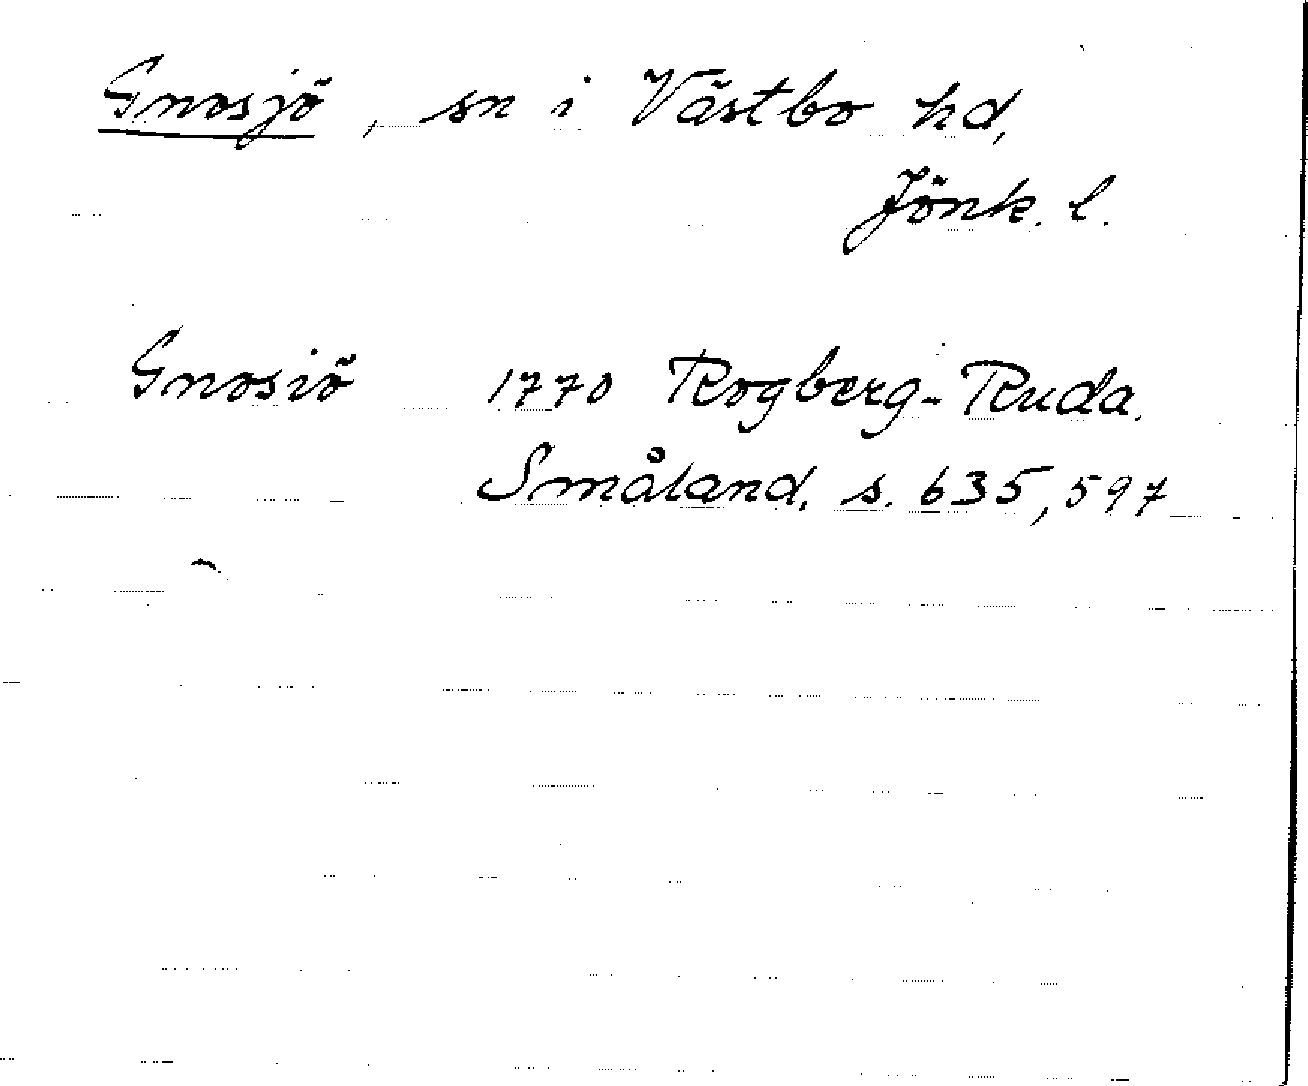 Gnosjö, sn i Västbo hd,
Jönk. l.
Gnosiö 1770 Rogberg-Ruda.
Småland, s. 635, 597